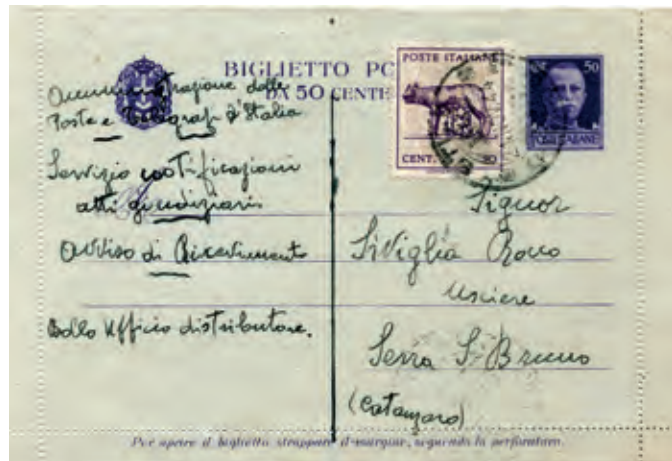 BIGLIETTO PO
DA 50 CENTE
POSTE ITALIANE
CENT. 50
50
POSTE ITALIANE
Amministrazione delle
Poste e Telegrafi d'Italia
Servizio notificazioni
atti giudiziari
Avviso di Ricevimento
Bollo Ufficio distributore.
Signor
Siviglia Rocco
Usciere
Serra S. Bruno
(Catanzaro)
Per aprire il biglietto strappare il margine, seguendo la perforatura.